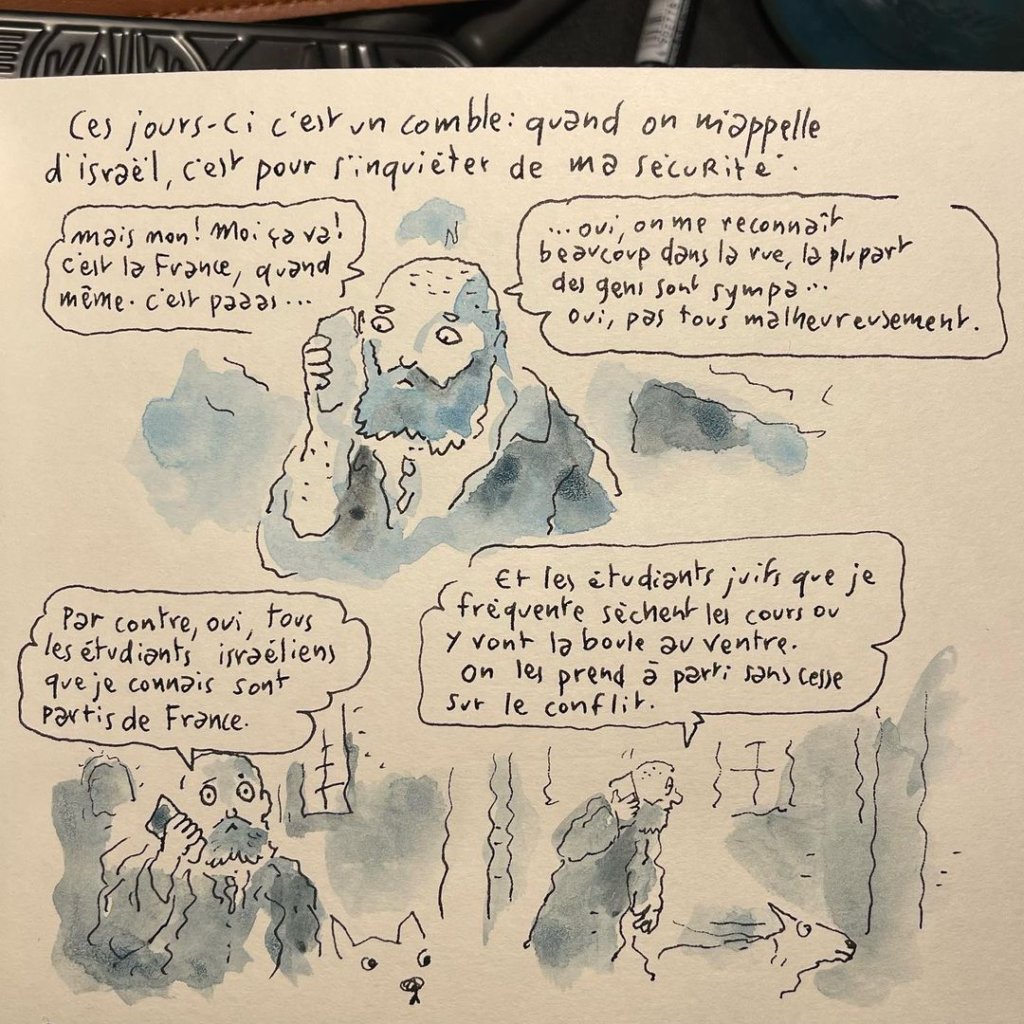 Ces jours-ci c'est un comble: quand on m'appelle
d'israël, c'est pour s'inquiéter de ma sécurité.
mais non! Moi ça va!
c'est la France, quand
même. c'est paaas...
...oui, on me reconnaît
beaucoup dans la rue, la plupart
des gens sont sympa...
oui, pas tous malheureusement.
Par contre, oui, tous
les étudiants israéliens
que je connais sont
partis de France.
Et les étudiants juifs que je
fréquente sèchent les cours ou
y vont la boule au ventre.
On les prend à parti sans cesse
sur le conflit.